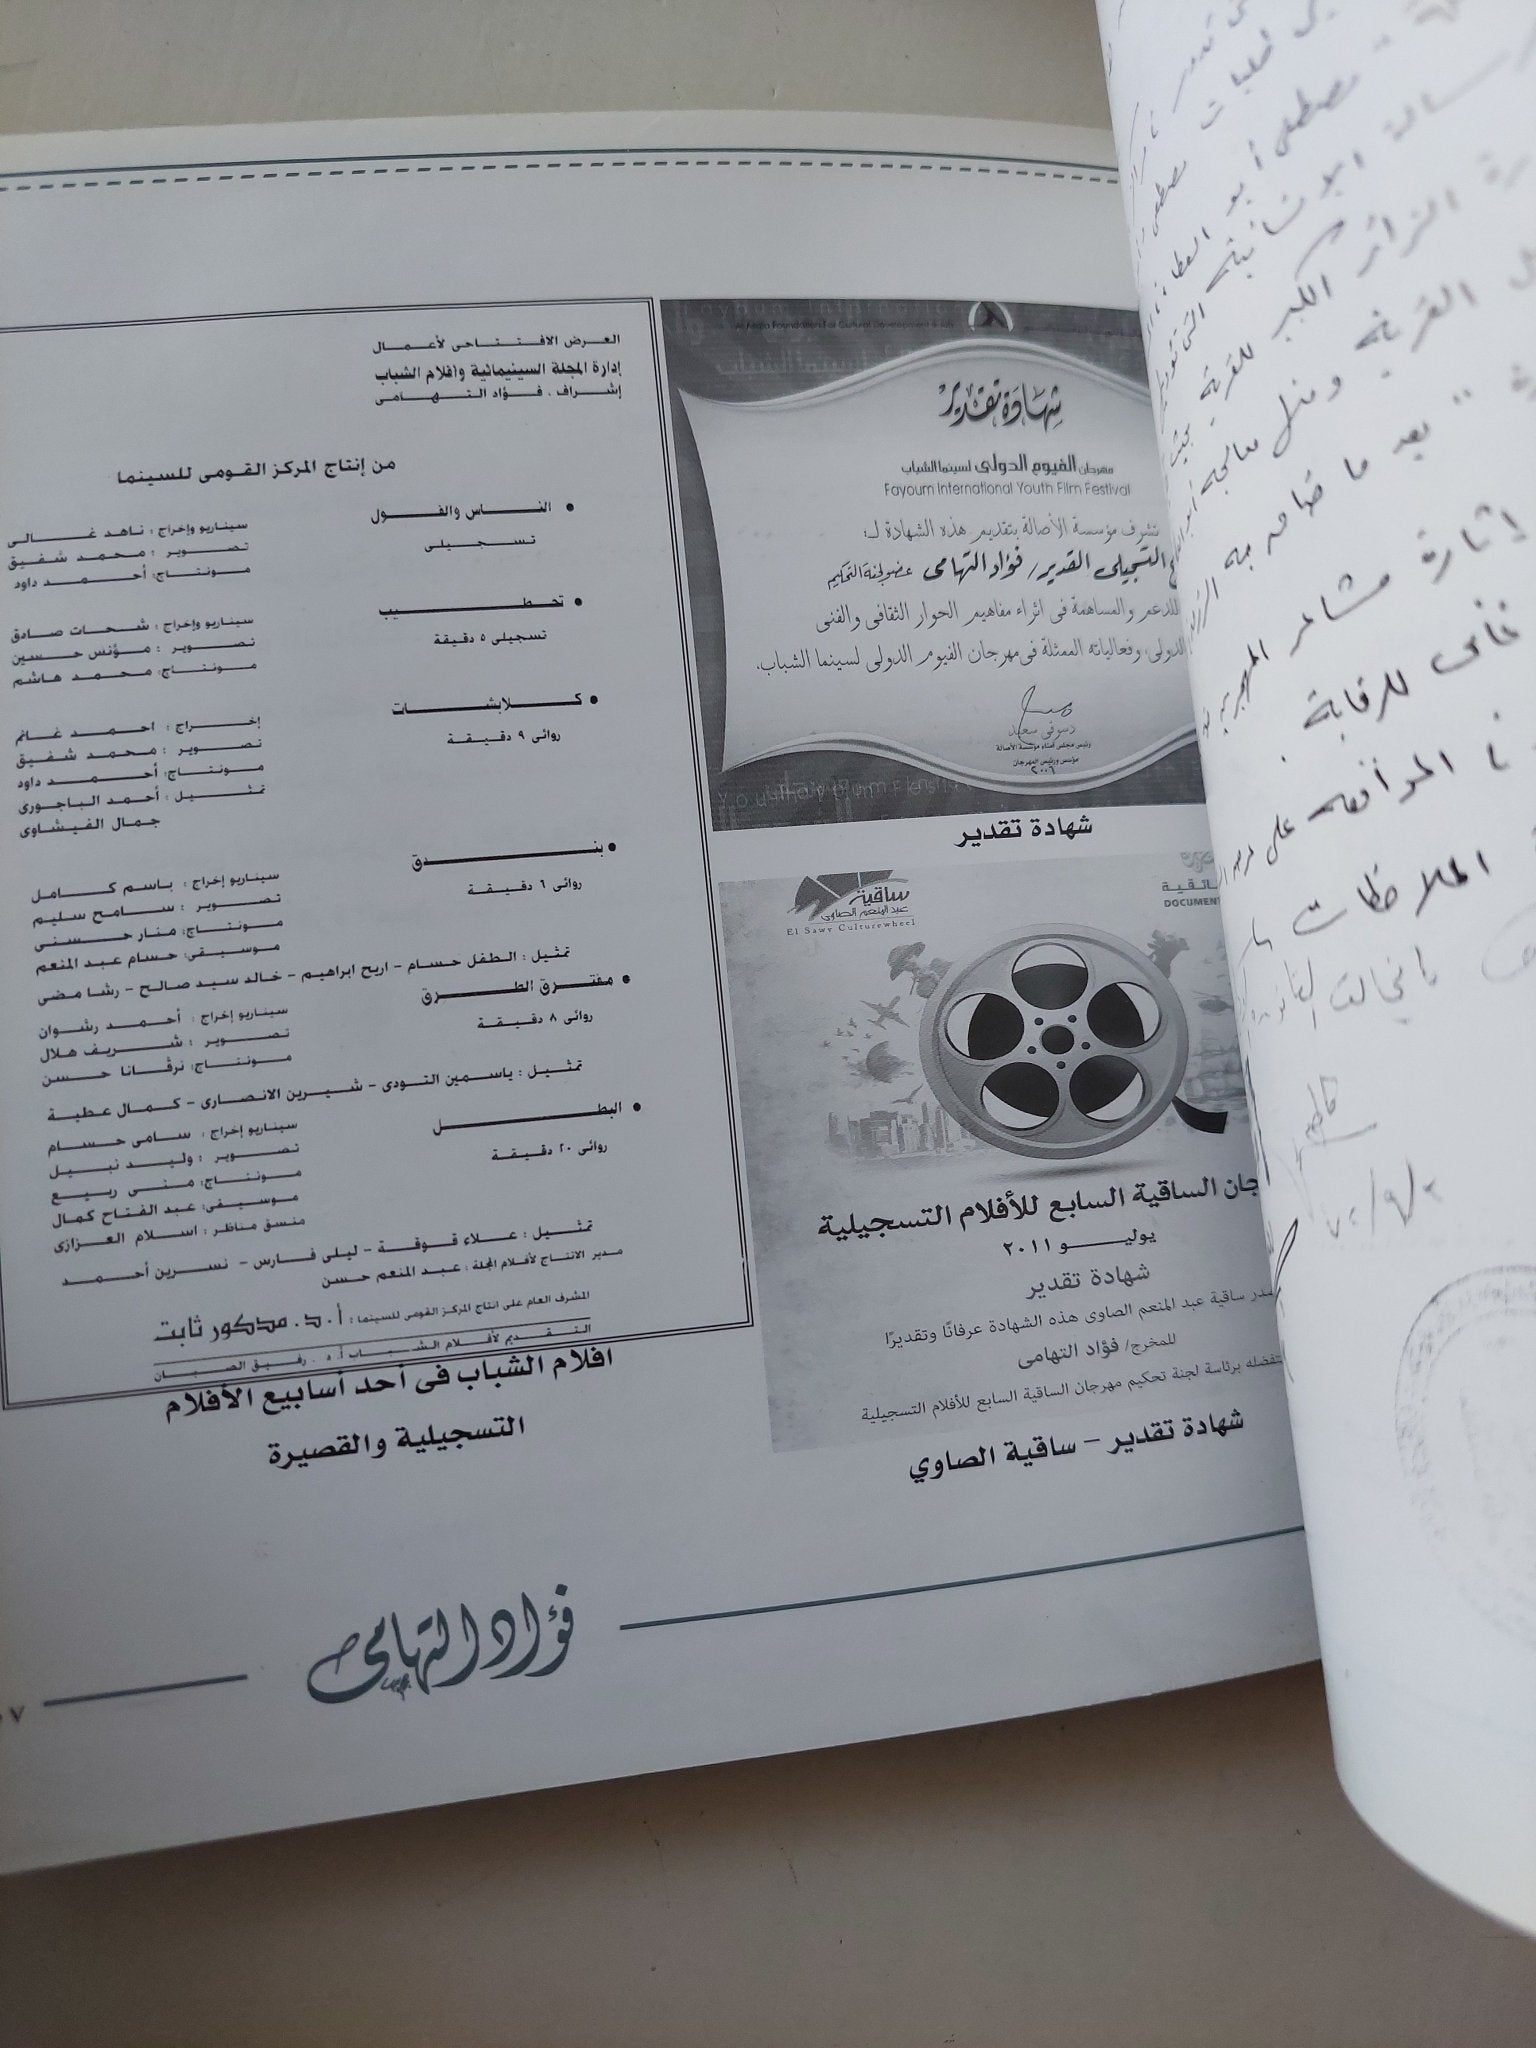 العرض الافتتاحى لأعمال
إدارة المجلة السينمائية وأفلام الشباب
إشراف . فؤاد التهامى
من إنتاج المركز القومى للسينما
• الناس والفول
تسجيلى
سيناريو وإخراج : ناهد غالى
تصوير : محمد شفيق
مونتاج: أحمد داود
• تحطيب
تسجيلى ٥ دقيقة
سيناريو وإخراج : شحات صادق
تصوير : مؤنس حسين
مونتاج: محمد هاشم
• كلابشات
روائى ٩ دقيقة
إخراج : احمد غانم
تصوير : محمد شفيق
مونتاج: أحمد داود
تمثيل : أحمد الباجورى
جمال الفيشاوى
• بندق
روائى ٦ دقيقة
سيناريو إخراج : باسم كامل
تصوير : سامح سليم
مونتاج: منار حسنى
موسيقى: حسام عبد المنعم
تمثيل : الطفل حسام - اريج ابراهيم - خالد سيد صالح - رشا مضى
• مفترق الطرق
روائى ٨ دقيقة
سيناريو إخراج : أحمد رشوان
تصوير : شريف هلال
مونتاج: نرڤانا حسن
تمثيل : ياسمين التودى - شيرين الانصارى - كمال عطية
• البطل
روائى ٢٠ دقيقة
سيناريو إخراج : سامى حسام
تصوير : وليد نبيل
مونتاج: منى ربيع
موسيقى: عبد الفتاح كمال
منسق مناظر : اسلام العزازى
تمثيل : علاء قوقة - ليلى فارس - نسرين أحمد
مدير الانتاج لأفلام المجلة : عبد المنعم حسن
المشرف العام على انتاج المركز القومى للسينما : أ.د. مدكور ثابت
التقديم لأفلام الشباب أ.د. رفيق الصبان
افلام الشباب فى أحد أسابيع الأفلام
التسجيلية والقصيرة
Foundation For Cultural Development
شهادة تقدير
مهرجان الفيوم الدولى لسينما الشباب
Fayoum International Youth Film Festival
تشرف مؤسسة الأصالة بتقديم هذه الشهادة لـ:
التسجيلى القدير/ فؤاد التهامى عضو لجنة التحكيم
للدعم والمساهمة فى اثراء مفاهيم الحوار الثقافى والفنى
الدولى، وفعالياته الممثلة فى مهرجان الفيوم الدولى لسينما الشباب.
دسوقى سعيد
رئيس مجلس أمناء مؤسسة الأصالة
مؤسس ورئيس المهرجان
٢٠٠٦
شهادة تقدير
ساقية
عبد المنعم الصاوى
El Sawy Culturewheel
DOCUMENT
جان الساقية السابع للأفلام التسجيلية
يوليو ٢٠١١
شهادة تقدير
ساقية عبد المنعم الصاوى هذه الشهادة عرفانًا وتقديرًا
للمخرج/ فؤاد التهامى
تفضله برئاسة لجنة تحكيم مهرجان الساقية السابع للأفلام التسجيلية
شهادة تقدير – ساقية الصاوي
فؤاد التهامى
مصطفى أبو العطا
الزائر
القرية
إثارة مشاعر
للرقابة .
الملاحظات